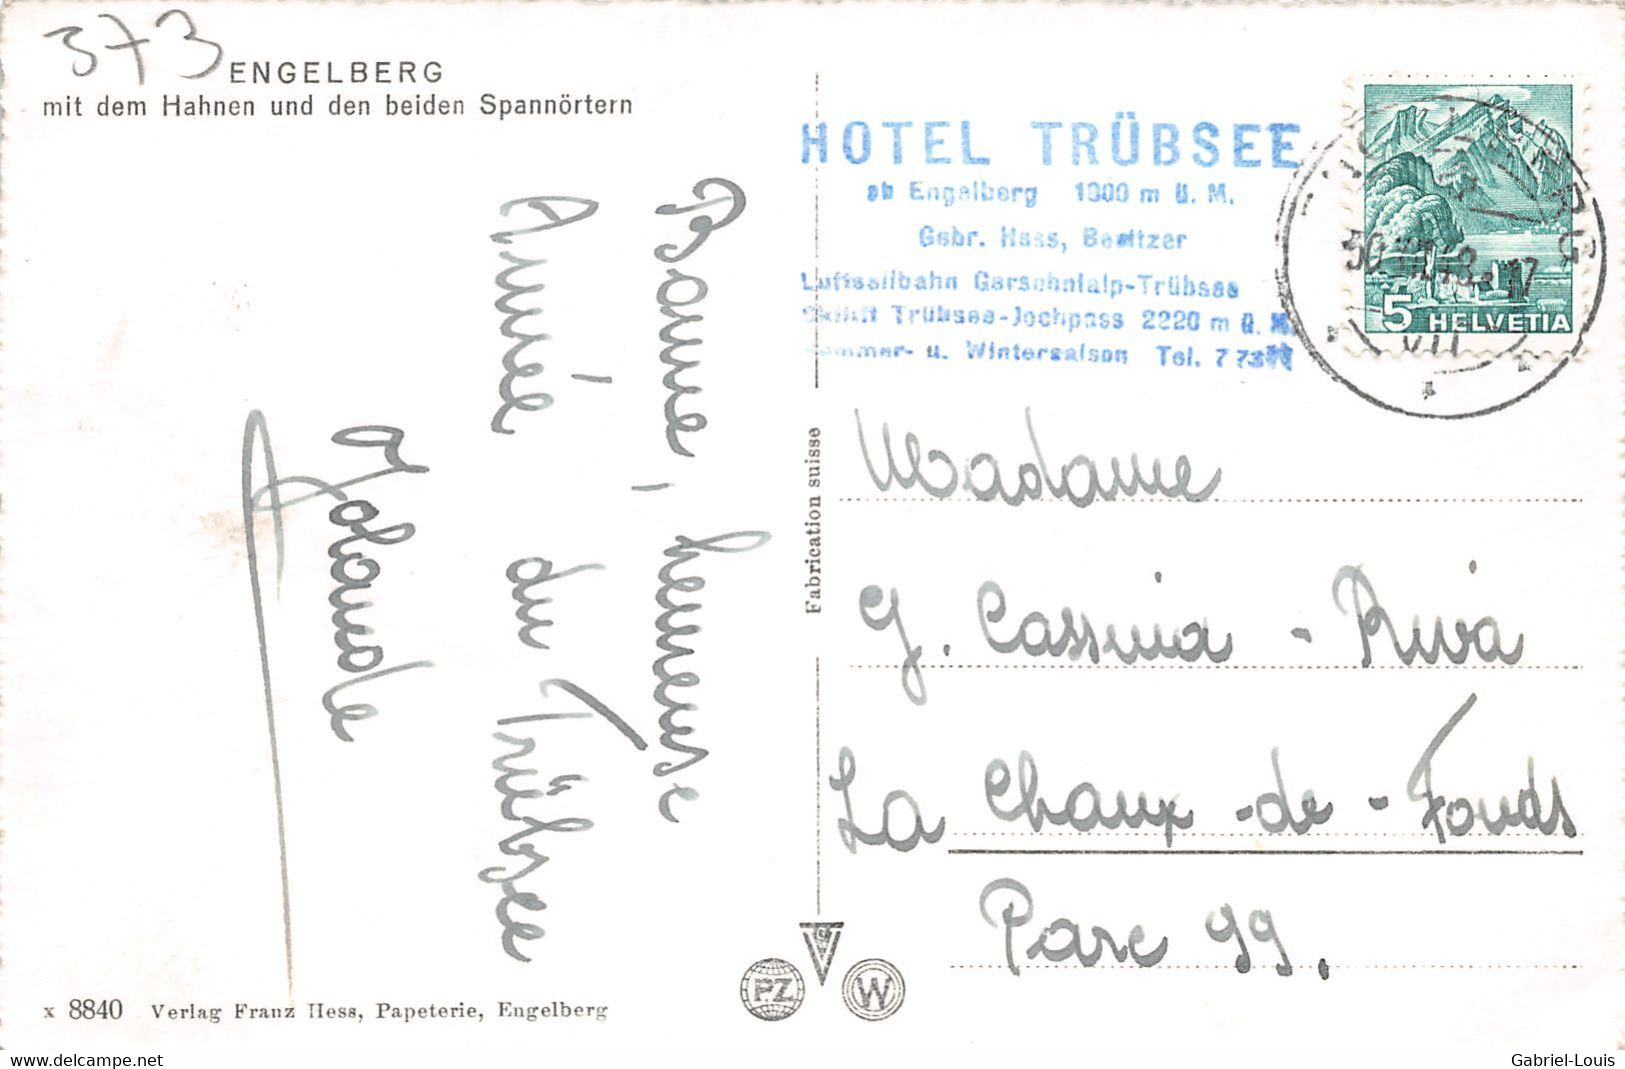 373
ENGELBERG
mit dem Hahnen und den beiden Spannörtern
Bonne, heureuse
Année
du Trübsee
Yolande
x 8840 Verlag Franz Hess, Papeterie, Engelberg
Fabrication suisse
PZ
W
HOTEL TRÜBSEE
ab Engelberg 1800 m ü. M.
Gebr. Hess, Besitzer
Luftseilbahn Gerschnialp-Trübsee
Skilift Trübsee-Jochpass 2220 m ü. M.
Sommer- u. Wintersaison Tel. 7 73
5 HELVETIA
VII
Madame
J. Cassina - Riva
La Chaux-de-Fonds
Parc 99.
www.delcampe.net
Gabriel-Louis